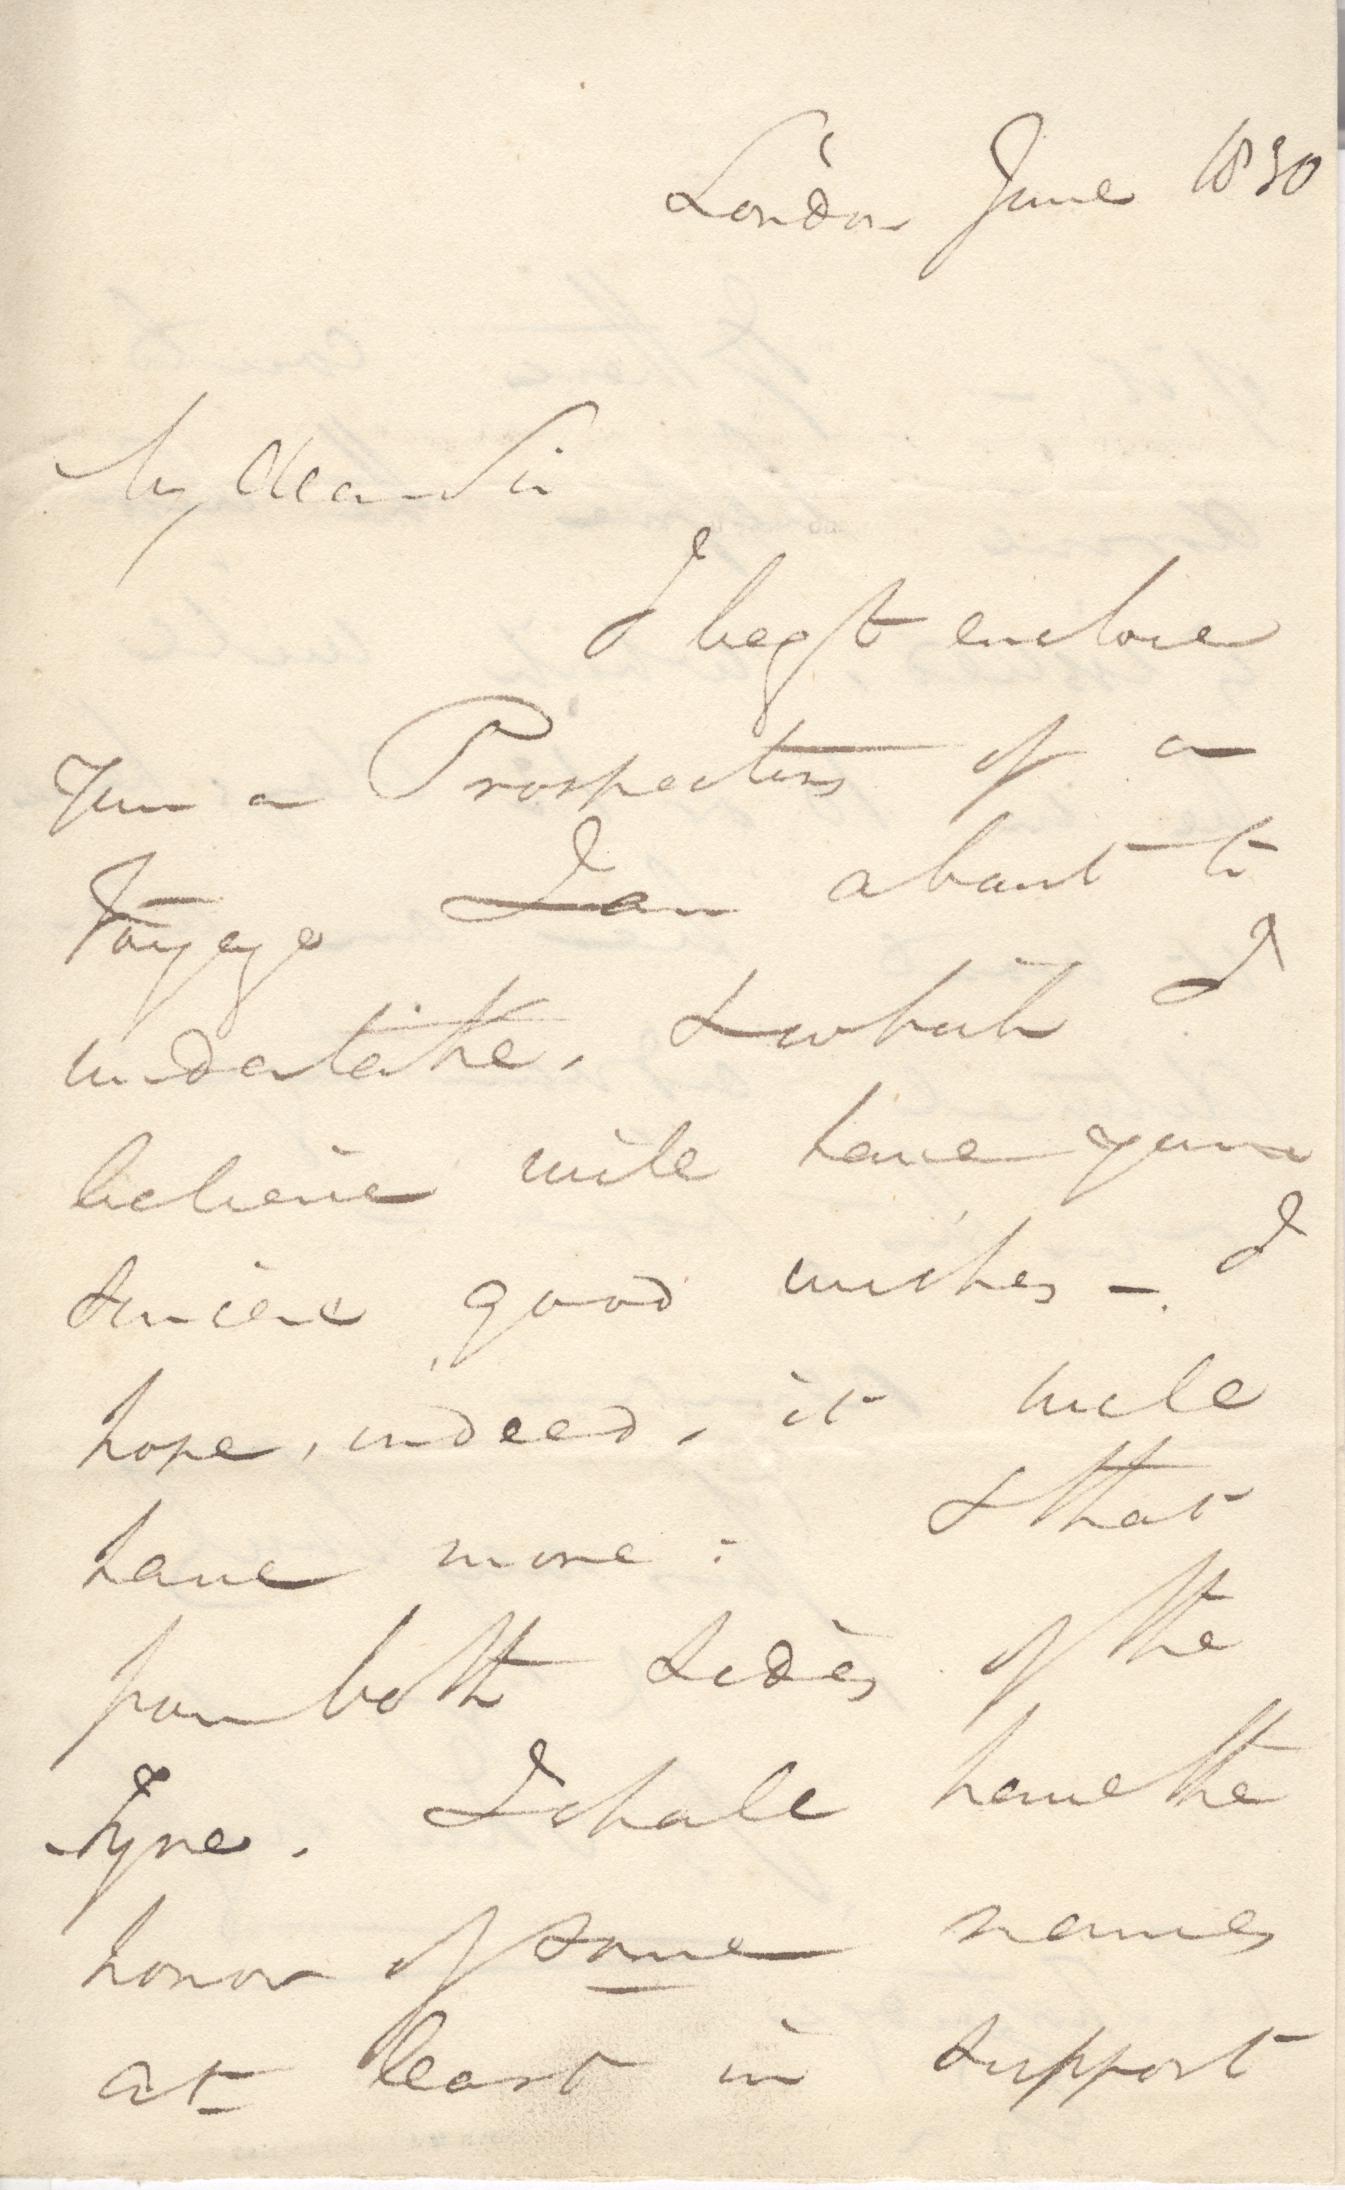 London June 1830
My dear Sir
I beg to enclose
you a Prospectus of a
Voyage I am about to
undertake, & which I
believe will have your
sincere good wishes - I
hope, indeed, it will
have more: & that
from both sides of the
Tyne. I shall have the
honor of some names
at least in support